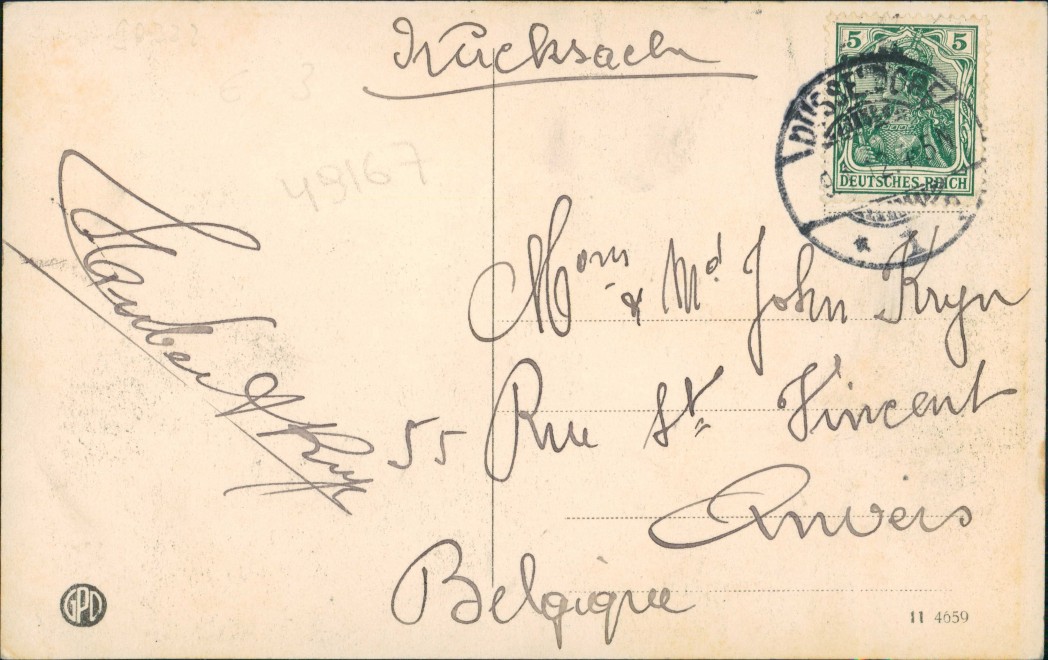 5 5
DEUTSCHES REICH
DÜSSELDORF
* 1
49167
Mons & Md John Kryn
55 Rue St Vincent
Anvers
Belgique
GPD
11 4659